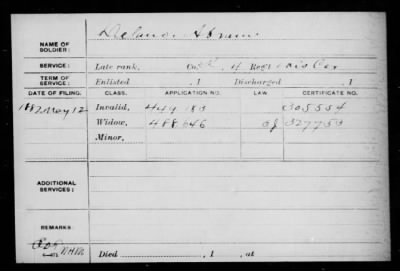 NAME OF SOLDIER: Delano Abram
SERVICE: Late rank, Co. of Reg't
TERM OF SERVICE: Enlisted , 1 Discharged , 1
DATE OF FILING. CLASS. APPLICATION NO. LAW. CERTIFICATE NO.
1887 May 12 Invalid, 449 183 305554
Widow, 488646 327753
Minor,
ADDITIONAL SERVICES:
REMARKS:
Died , 1 , at